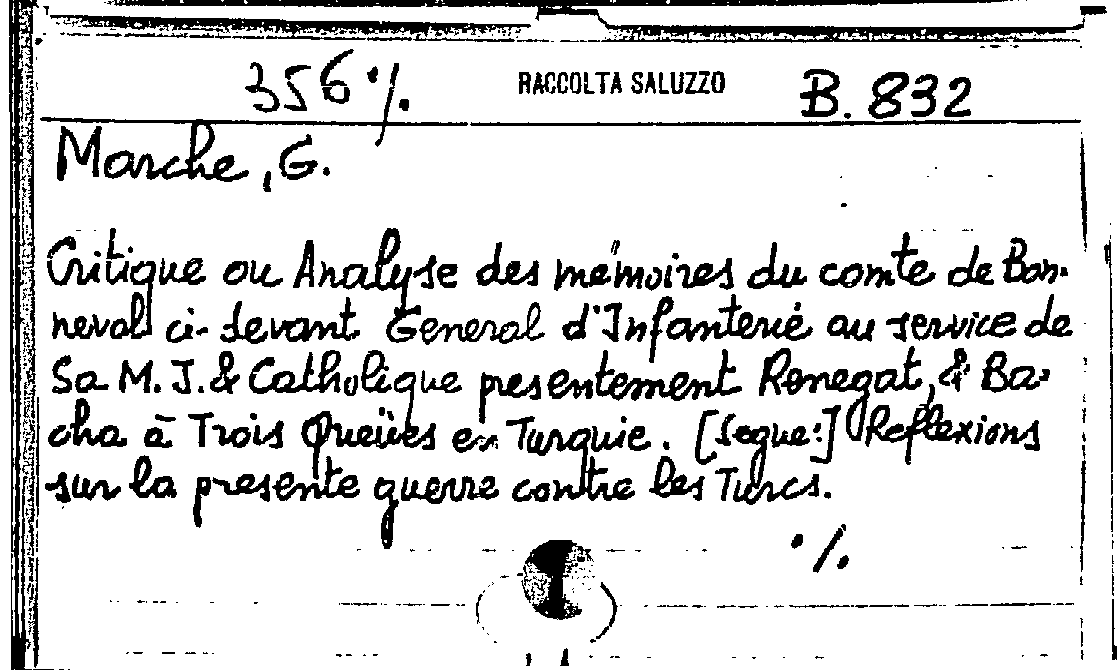 356 ·/. RACCOLTA SALUZZO B. 832
Marche, G.
Critique ou Analyse des mémoires du comte de Bon-
neval ci-devant General d'Infanterie au service de
Sa M. I. & Catholique presentement Renegat, & Ba-
cha à Trois Queües en Turquie. [Segue:] Reflexions
sur la presente guerre contre les Turcs.
·/.